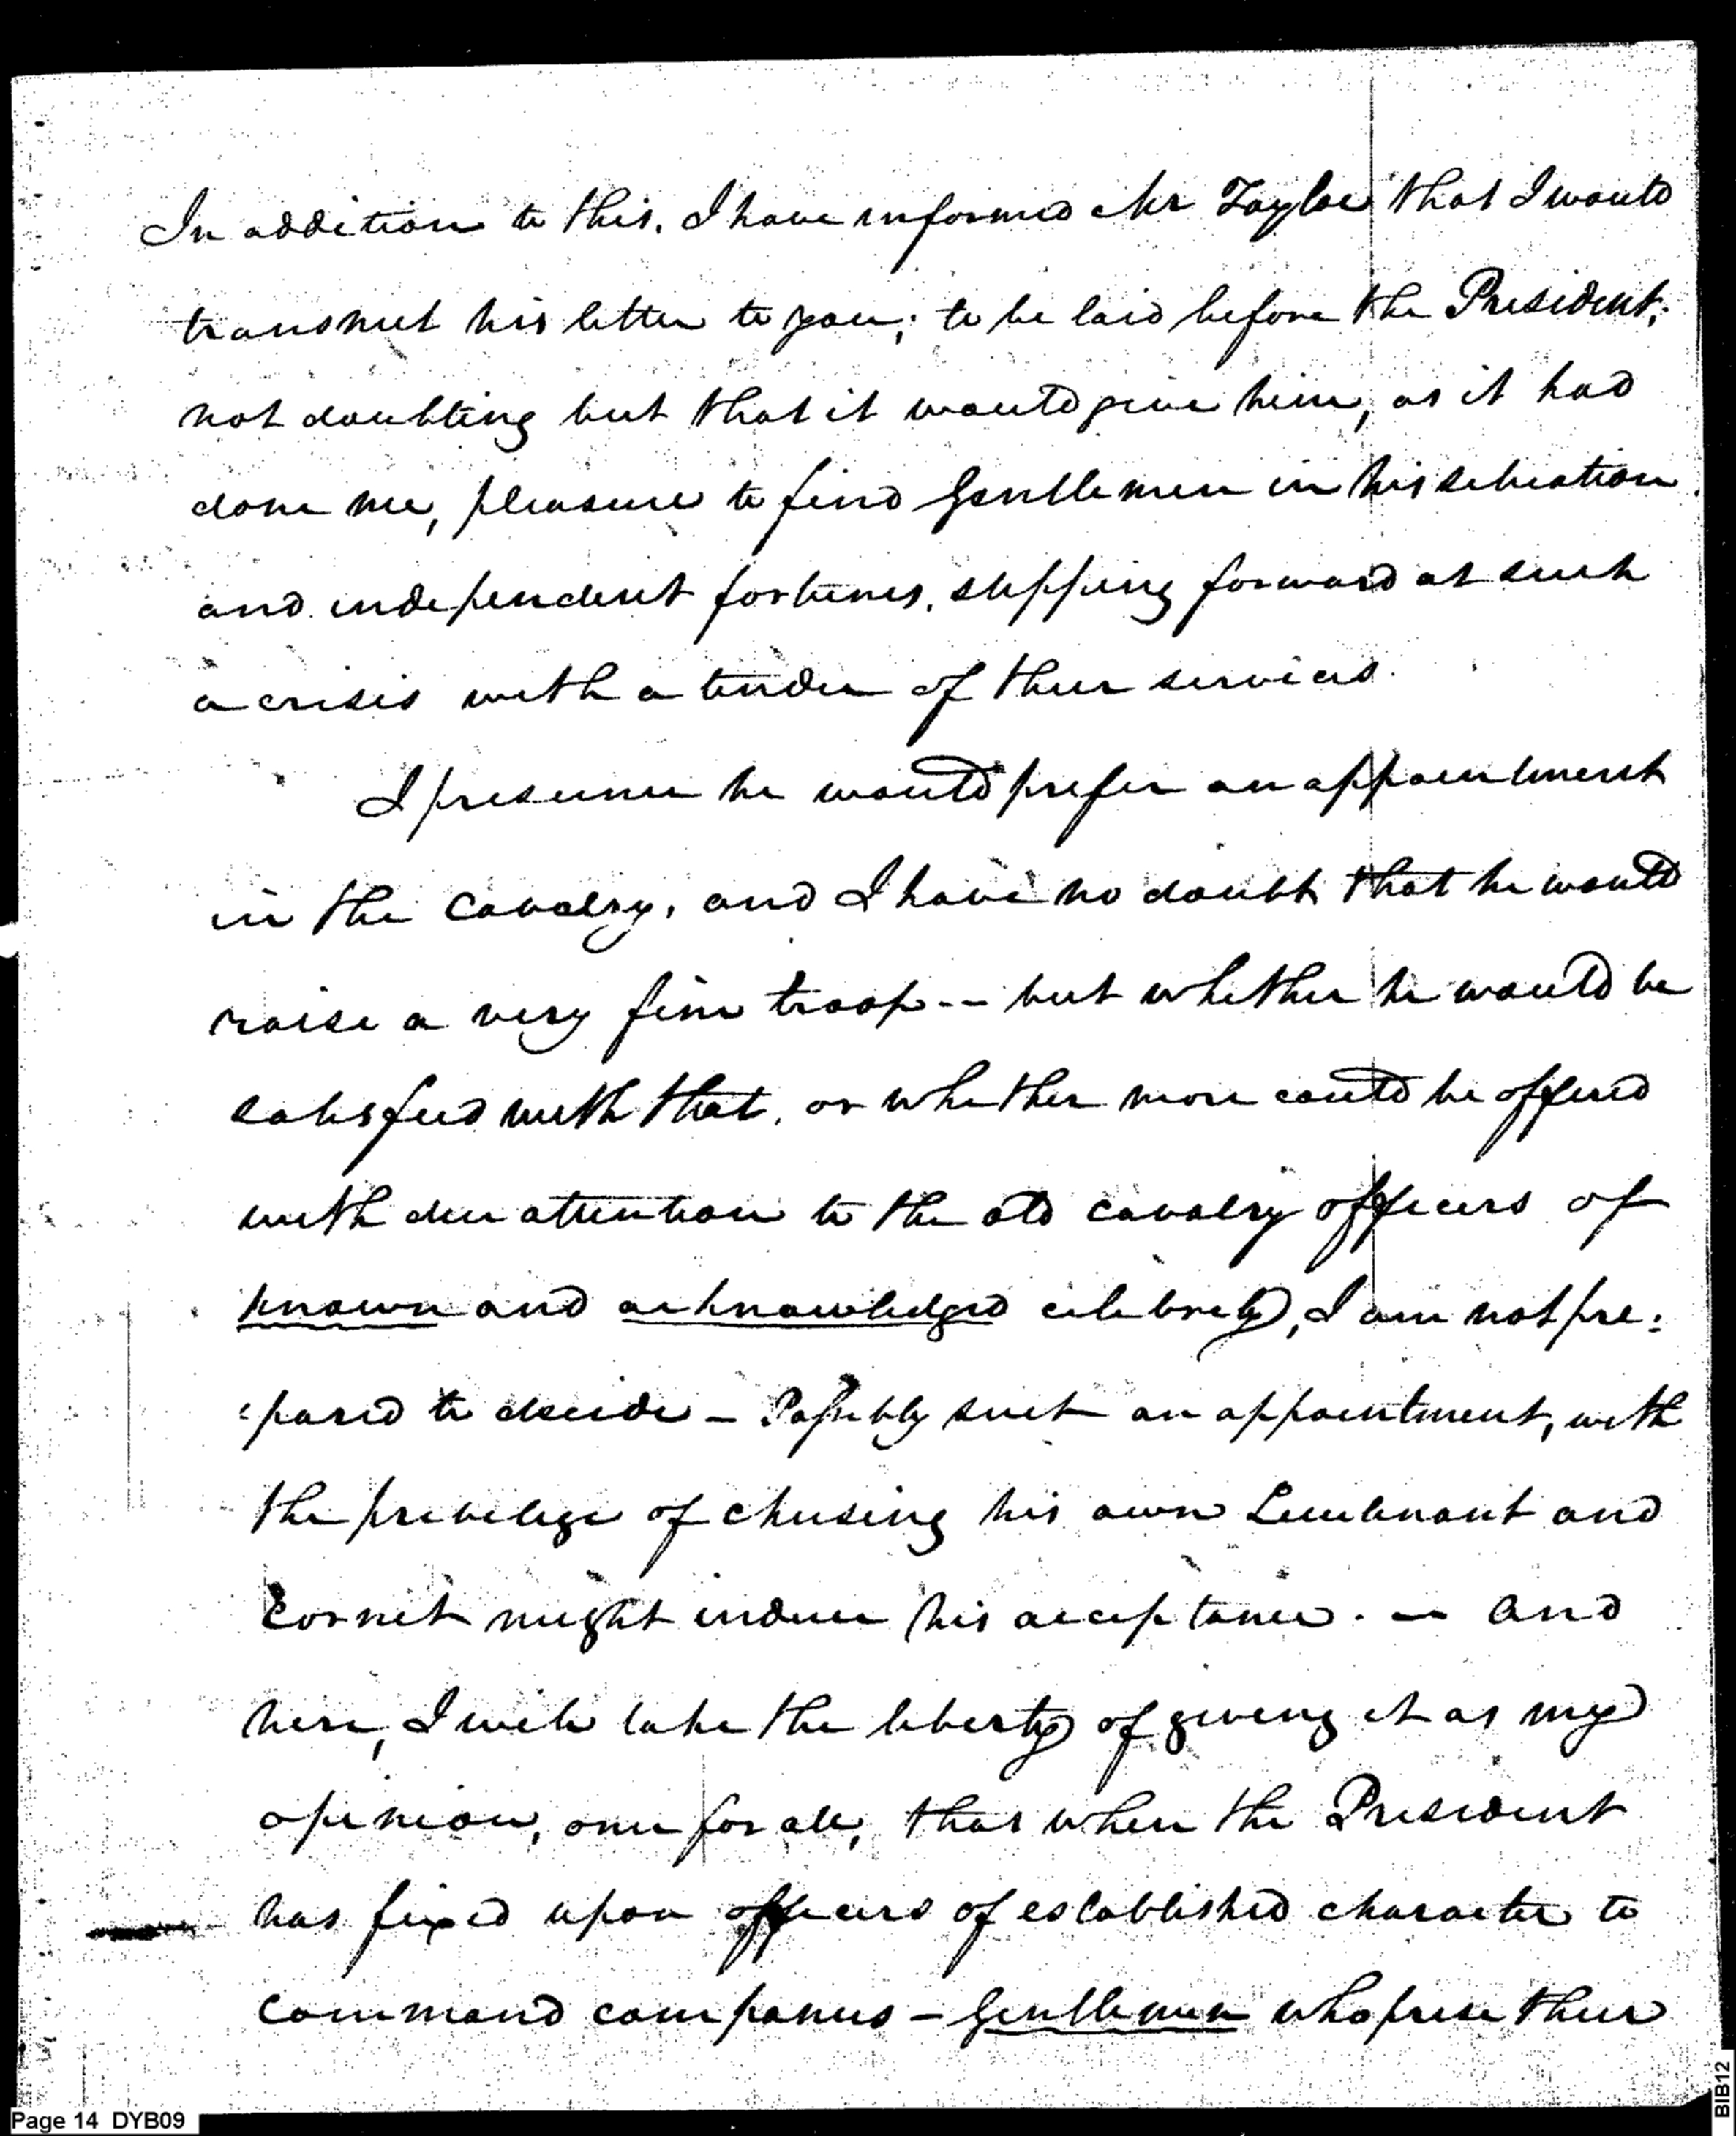 In addition to this, I have informed Mr Tayloe that I would
transmit his letter to you; to be laid before the President;
not doubting but that it would give him, as it had
done me, pleasure to find Gentlemen in his situation
and independent fortunes, stepping forward at such
a crisis with a tender of their services.
I presume he would prefer an appointment
in the Cavalry, and I have no doubt that he would
raise a very fine troop -- but whether he would be
satisfied with that, or whether more could be offered
with due attention to the old cavalry officers of
known and acknowledged celebrity, I am not pre:
:pared to decide - Possibly such an appointment, with
the privelege of chusing his own Lieutenant and
Cornet might induce his acceptance. — And
here, I will take the liberty of giving it as my
opinion, once for all, that when the President
has fixed upon officers of established character to
command companies - Gentlemen who prise their
Page 14 DYB09
BIB12